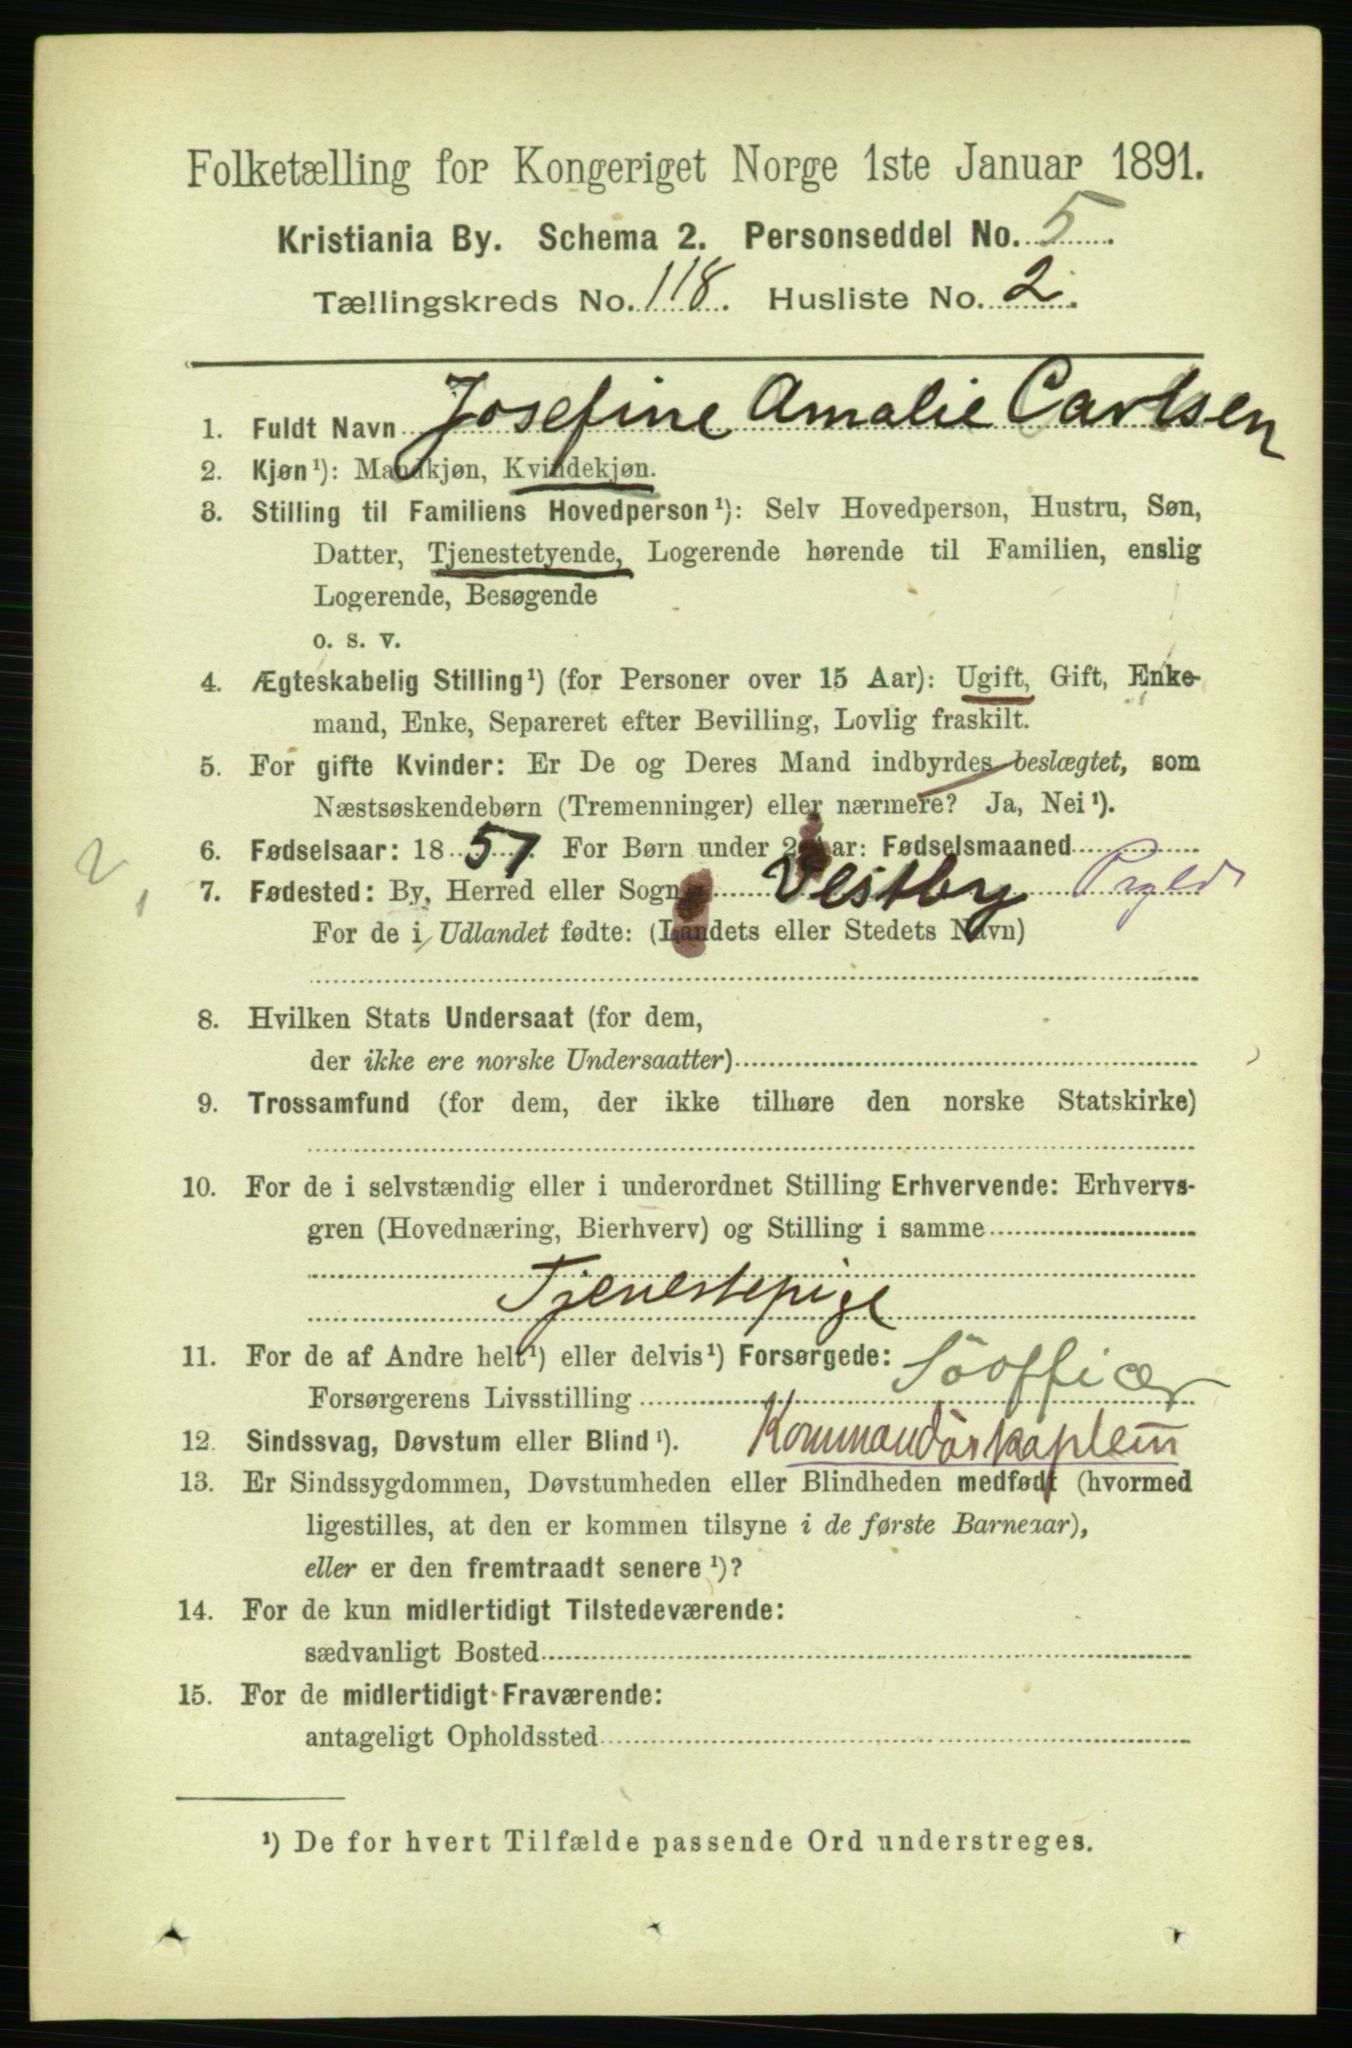 Folketælling for Kongeriget Norge 1ste Januar 1891.
Kristiania By. Schema 2. Personseddel No. 5.
Tællingskreds No. 118. Husliste No. 2.
1. Fuldt Navn Josefine Amalie Carlsen
2. Kjøn¹): Mandkjøn, Kvindekjøn.
3. Stilling til Familiens Hovedperson¹): Selv Hovedperson, Hustru, Søn,
Datter, Tjenestetyende, Logerende hørende til Familien, enslig
Logerende, Besøgende
o. s. v.
4. Ægteskabelig Stilling¹) (for Personer over 15 Aar): Ugift, Gift, Enke-
mand, Enke, Separeret efter Bevilling, Lovlig fraskilt.
5. For gifte Kvinder: Er De og Deres Mand indbyrdes beslægtet, som
Næstsøskendebørn (Tremenninger) eller nærmere? Ja, Nei¹).
2
6. Fødselsaar: 1857. For Børn under 2 Aar: Fødselsmaaned
7. Fødested: By, Herred eller Sogn Vestby
For de i Udlandet fødte: (Landets eller Stedets Navn)
8. Hvilken Stats Undersaat (for dem,
der ikke ere norske Undersaatter)
9. Trossamfund (for dem, der ikke tilhøre den norske Statskirke)
10. For de i selvstændig eller i underordnet Stilling Erhvervende: Erhvervs-
gren (Hovednæring, Bierhverv) og Stilling i samme
Tjenestepige
11. For de af Andre helt¹) eller delvis¹) Forsørgede:
Forsørgerens Livsstilling Söofficer
12. Sindssvag, Døvstum eller Blind¹). Kommandörkaptein
13. Er Sindssygdommen, Døvstumheden eller Blindheden medfødt (hvormed
ligestilles, at den er kommen tilsyne i de første Barneaar),
eller er den fremtraadt senere¹)?
14. For de kun midlertidigt Tilstedeværende:
sædvanligt Bosted
15. For de midlertidigt Fraværende:
antageligt Opholdssted
¹) De for hvert Tilfælde passende Ord understreges.